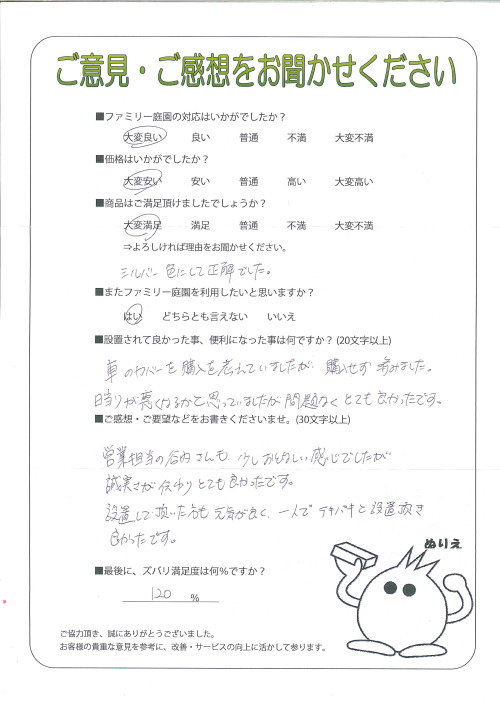 ご意見・ご感想をお聞かせください
■ファミリー庭園の対応はいかがでしたか？
大変良い 良い 普通 不満 大変不満
■価格はいかがでしたか？
大変安い 安い 普通 高い 大変高い
■商品はご満足頂けましたでしょうか？
大変満足 満足 普通 不満 大変不満
⇒よろしければ理由をお聞かせください。
シルバー色にして正解でした。
■またファミリー庭園を利用したいと思いますか？
はい どちらとも言えない いいえ
■設置されて良かった事、便利になった事は何ですか？(20文字以上)
車のカバーを購入を考えていましたが、購入せず済みました。
日当りが悪くなるかと思っていましたが問題なくとても良かったです。
■ご感想・ご要望などをお書きくださいませ。(30文字以上)
営業担当の谷内さんも、少しおとなしい感じでしたが
誠実さが伝わりとても良かったです。
設置して頂いた方も元気が良く、一人でテキパキと設置頂き
良かったです。
ぬりえ
■最後に、ズバリ満足度は何％ですか？
120 %
ご協力頂き、誠にありがとうございました。
お客様の貴重な意見を参考に、改善・サービスの向上に活かして参ります。